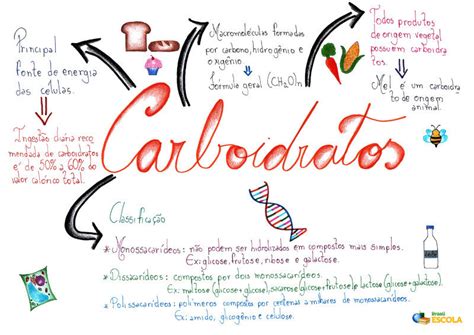 Principal
fonte de energia
das células.
Ingestão diária reco
mendada de carboidratos
é de 50% a 60% do
valor calórico total.
Macromoléculas formadas
por carbono, hidrogênio e
oxigênio
Fórmula geral (CH₂O)n
Todos produtos
de origem vegetal
possuem carboidra
tos.
Mel é um carboidra
to de origem
animal.
Carboidratos
Classificação
* Monossacarídeos: não podem ser hidrolizados em compostos mais simples.
Ex: glicose, frutose, ribose e galactose.
* Dissacarídeos: compostos por dois monossacarídeos
Ex: maltose (glicose + glicose), sacarose (glicose + frutose) e lactose (glicose + galactose).
* Polissacarídeos: polímeros compostos por centenas a milhares de monossacarídeos.
Ex: amido, glicogênio e celulose.
Brasil
ESCOLA